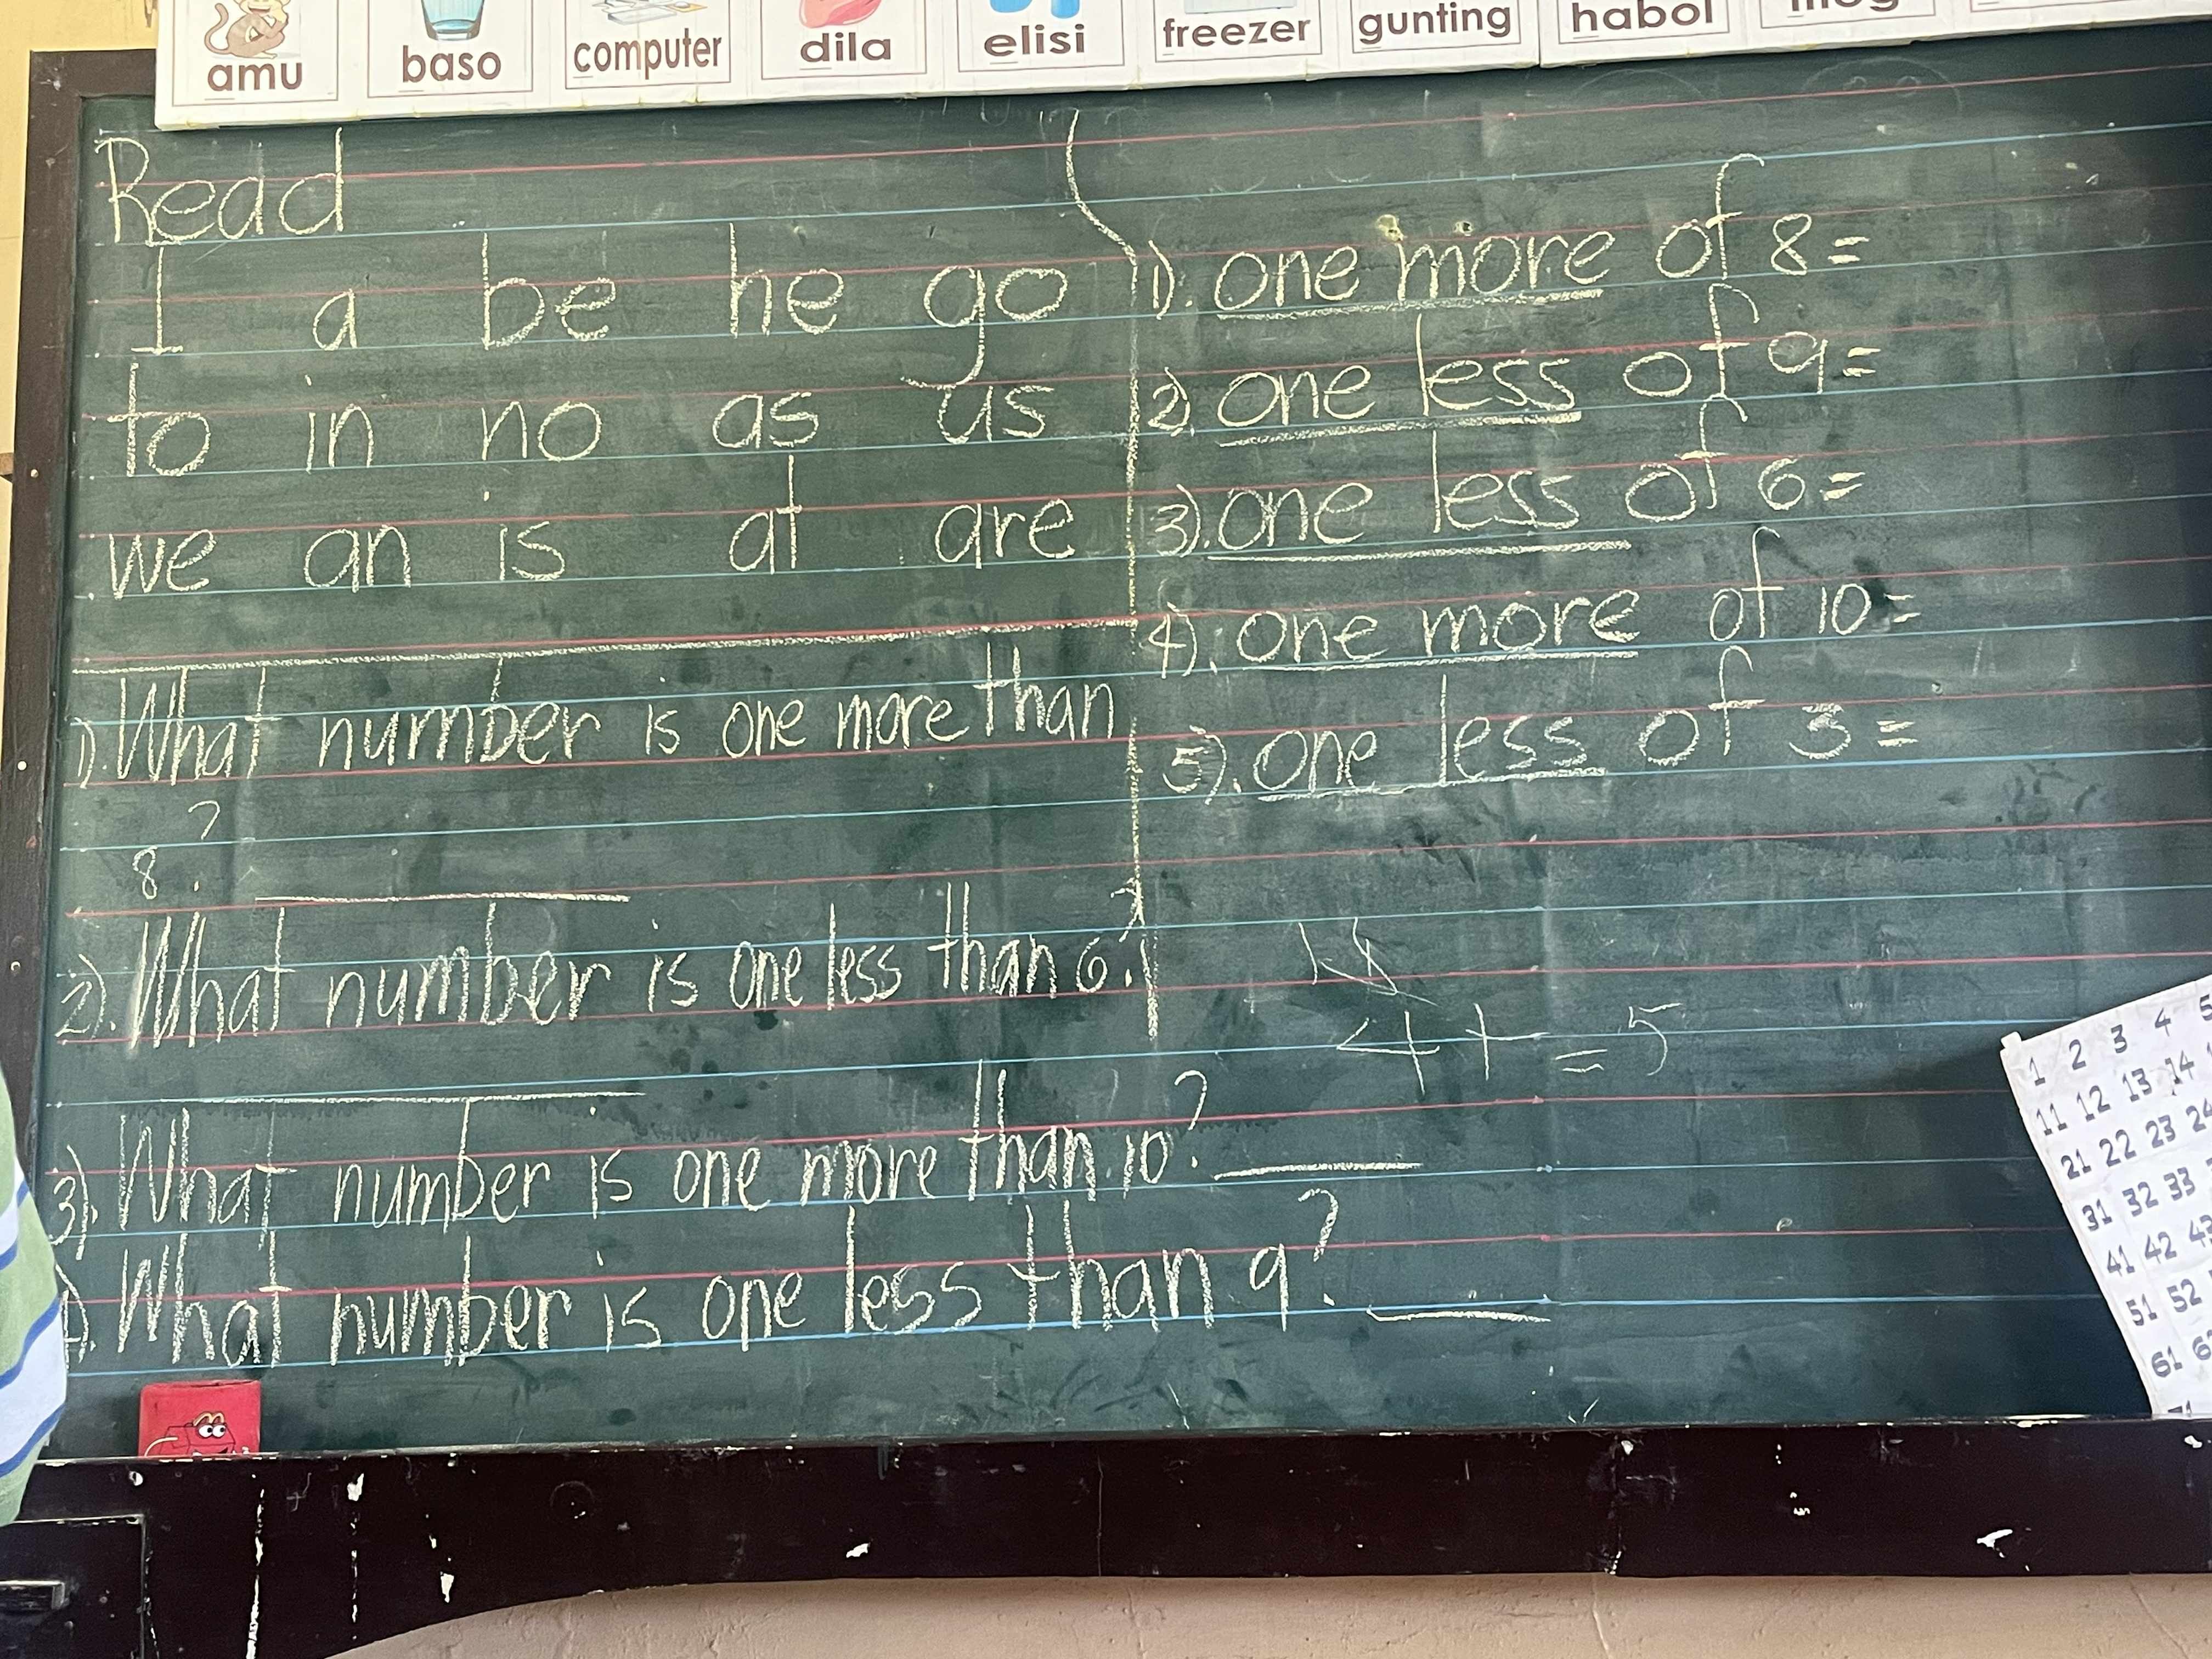 amu baso computer dila elisi freezer gunting habol
Read
I a be he go
to in no as us
we an is at are
1). What number is one more than
8? ____
2). What number is one less than 6?
____
3). What number is one more than 10? ____
What number is one less than 9? ____
1). one more of 8=
2) one less of 9=
3). one less of 6=
4). one more of 10=
5). one less of 3=
4+ =5
1 2 3 4 5
11 12 13 14
21 22 23 24
31 32 33
41 42 43
51 52
61